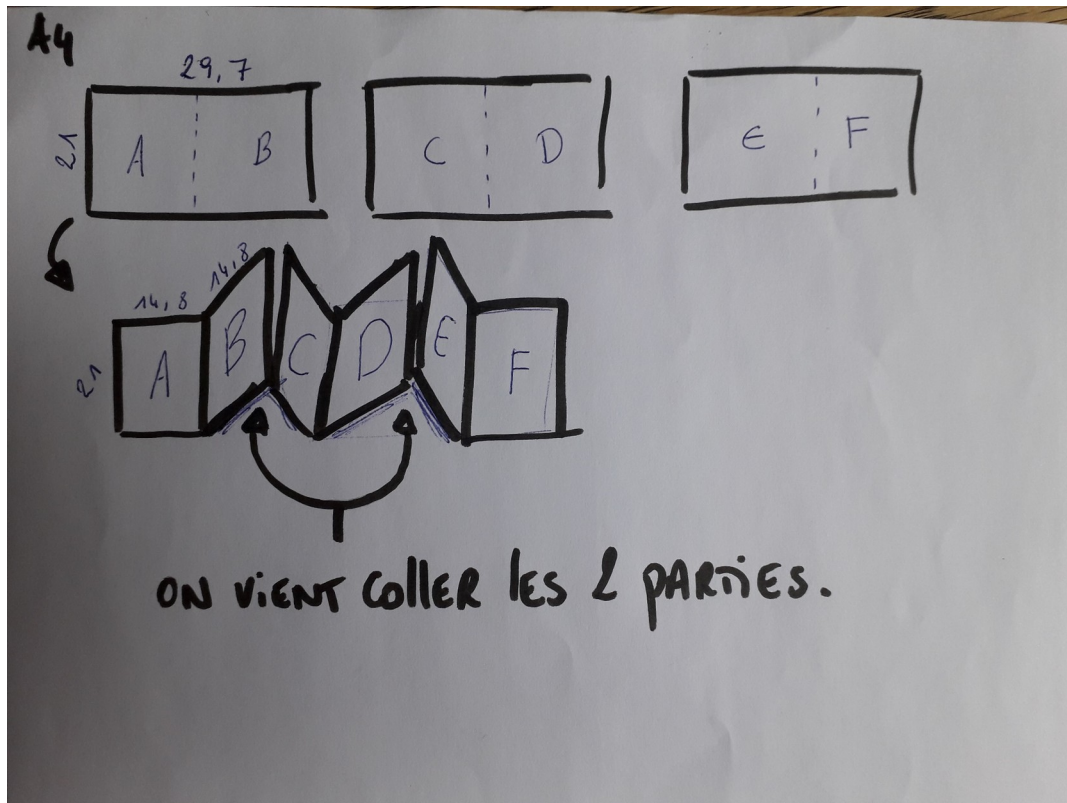 A4
29,7
21 A B C D E F
14,8 14,8
21 A B C D E F
ON VIENT COLLER LES 2 PARTIES.